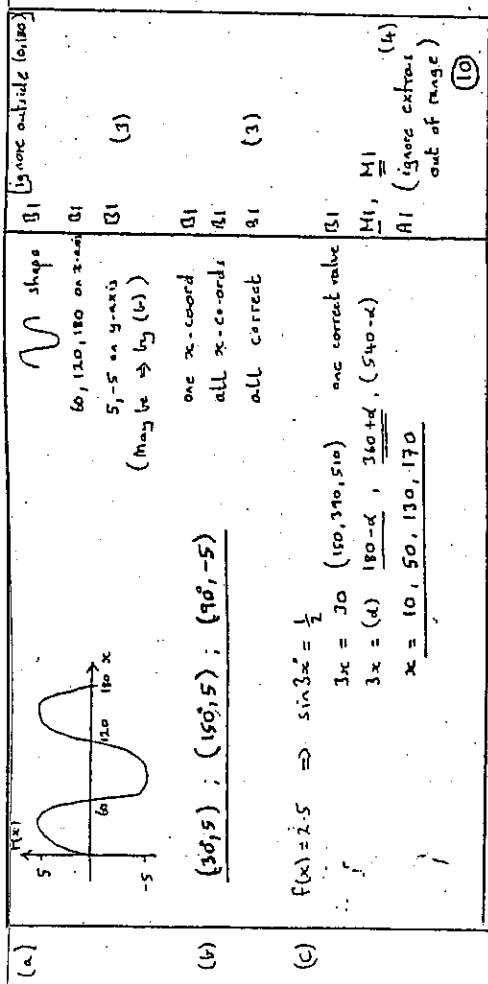 (a)
f(x)
5
60
120
180 x
-5
shape
B1
[ignore outside (0,180)
60, 120, 180 on x-axis
B1
5, -5 on y-axis
B1
(3)
(May be ⇒ by (b))
(b)
(30°, 5) ; (150°, 5) ; (90°, -5)
one x-coord
B1
all x-co-ords
B1
all correct
B1
(3)
(c)
f(x) = 2.5 ⇒ sin 3x° = 1/2
∴ 3x = 30 (150, 390, 510) one correct value
B1
3x = (α) 180-α, 360+α, (540-α)
M1, M1
x = 10, 50, 130, 170
A1
(4)
(ignore extras
out of range)
10